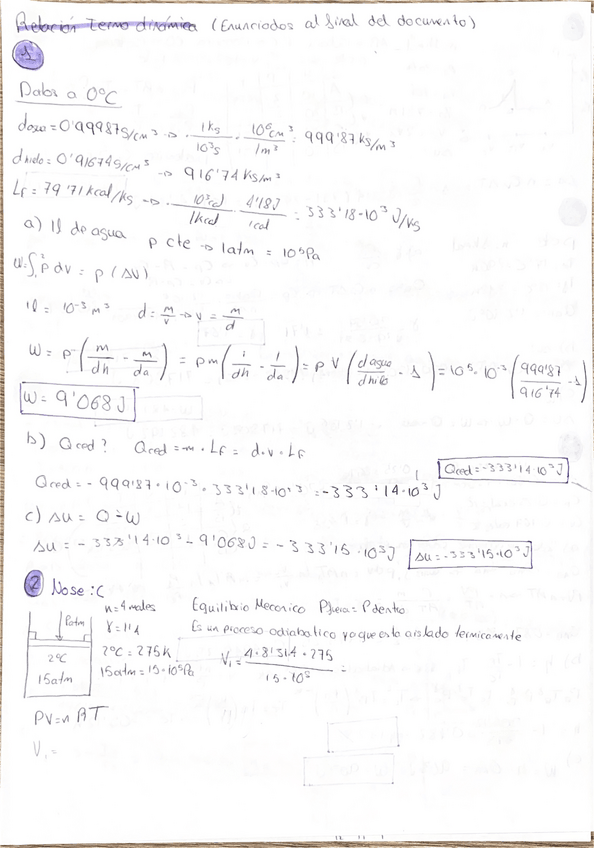 Relación Termodinámica (Enunciados al final del documento)
1
Datos a 0ºC
dagua = 0'99987g/cm³ → · 1kg/10³g · 10⁶cm³/1m³ = 999'87kg/m³
dhielo = 0'91674g/cm³ → 916'74 kg/m³
Lf = 79'71 kcal/kg → · 10³cal/1kcal · 4'18J/1cal = 333'18·10³ J/kg
a) 1l de agua p cte → 1atm = 10⁵Pa
W = ∫₁² p dv = p (ΔV)
1l = 10⁻³ m³ d = m/v → v = m/d
W = p · (m/dh - m/da) = p m (1/dh - 1/da) = p V (dagua/dhielo - 1) = 10⁵ · 10⁻³ (999'87/916'74 - 1)
W = 9'068 J
b) Qced? Qced = -m · Lf = d · v · Lf
Qced = -333'14·10³ J
Qced = - 999'87 · 10⁻³ · 333'18·10³ = -333'14·10³ J
c) Δu = Q - W
Δu = - 333'14·10³ - 9'068J = -333'15·10³ J
Δu = -333'15·10³ J
2 Nose :C
n = 4 moles Equilibrio Mecanico Pfuera = Pdentro
Patm γ = 1'4 Es un proceso adiabatico ya que esta aislado termicamente
2ºC 2ºC = 275K V₁ = 4·8'314·275/15·10⁵ =
15atm 15atm = 15·10⁵Pa
PV = nRT
V₁ =